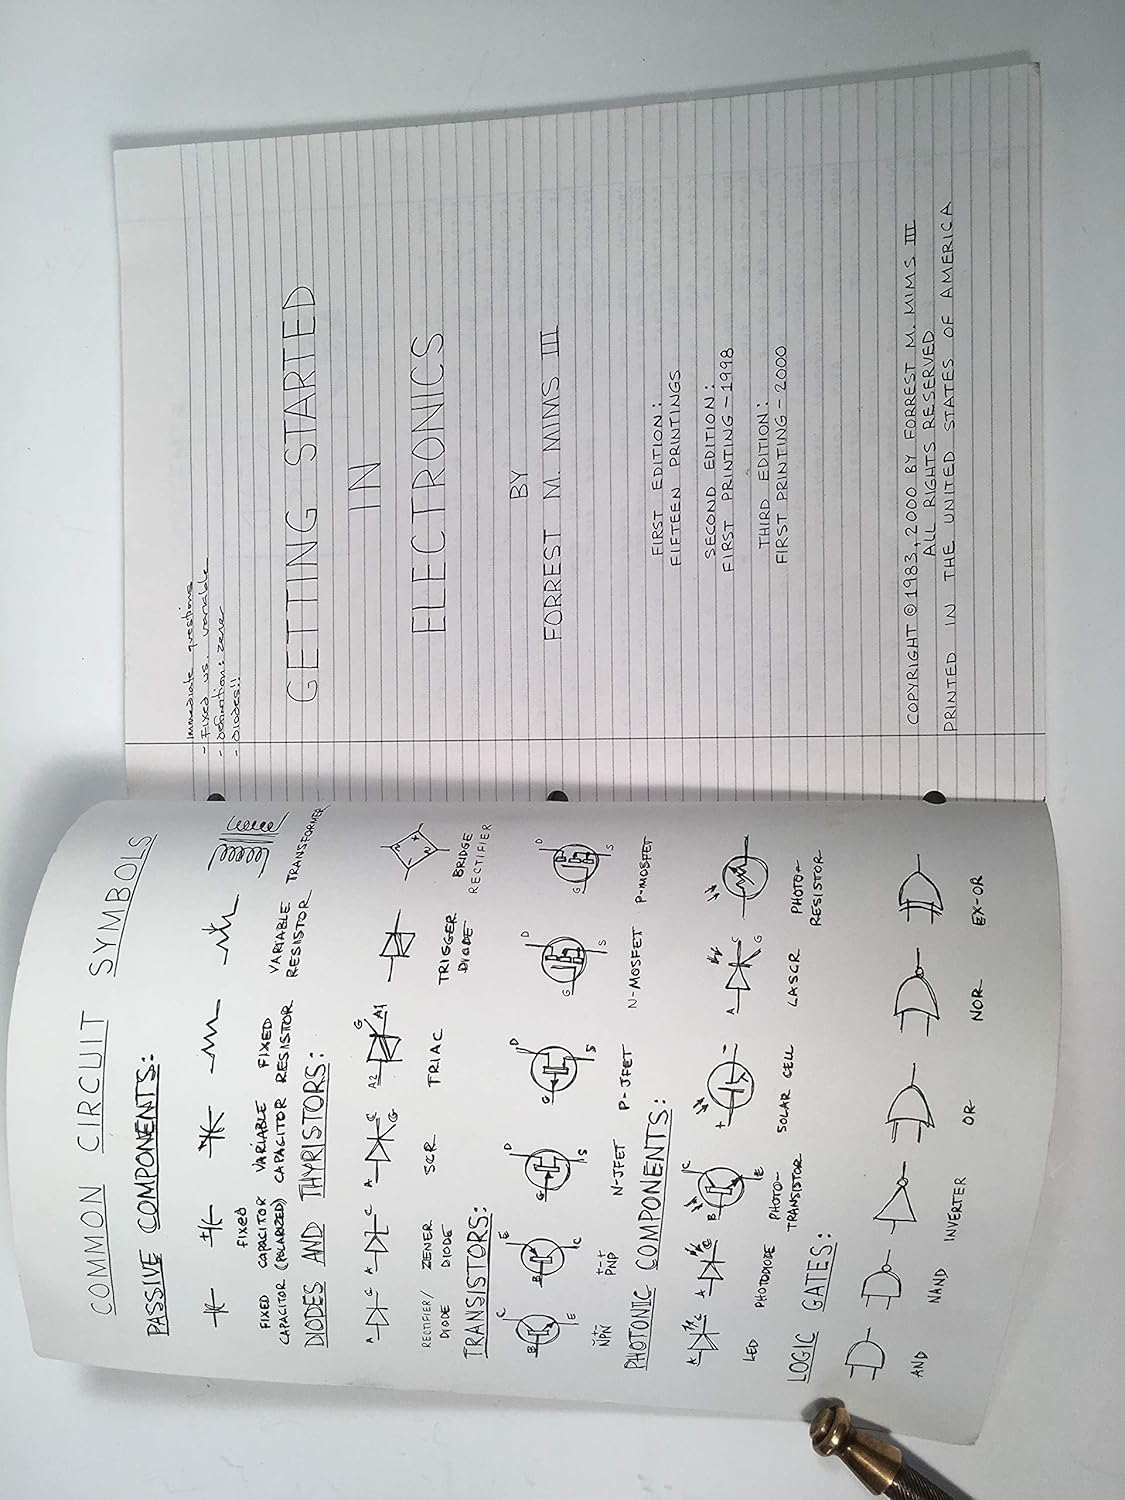 COMMON CIRCUIT SYMBOLS
PASSIVE COMPONENTS:
FIXED CAPACITOR
FIXED CAPACITOR (POLARIZED)
VARIABLE CAPACITOR
FIXED RESISTOR
VARIABLE RESISTOR
TRANSFORMER
DIODES AND THYRISTORS:
A C
A C
A C G
A2 G A1
RECTIFIER/ DIODE
ZENER DIODE
SCR
TRIAC
TRIGGER DIODE
BRIDGE RECTIFIER
TRANSISTORS:
B C E
B E C
G D S
G D S
G D S
G D S
NPN
PNP
N-JFET
P-JFET
N-MOSFET
P-MOSFET
PHOTONIC COMPONENTS:
A C
A C
B C E
+ -
A C G
LED
PHOTODIODE
PHOTO-TRANSISTOR
SOLAR CELL
LASCR
PHOTO-RESISTOR
LOGIC GATES:
AND NAND INVERTER OR NOR EX-OR
Immediate questions
- Fixed vs. variable
- Definition: zener
- Diodes!!
GETTING STARTED
IN
ELECTRONICS
BY
FORREST M. MIMS III
FIRST EDITION:
FIFTEEN PRINTINGS
SECOND EDITION:
FIRST PRINTING - 1998
THIRD EDITION:
FIRST PRINTING - 2000
COPYRIGHT © 1983, 2000 BY FORREST M. MIMS III
ALL RIGHTS RESERVED
PRINTED IN THE UNITED STATES OF AMERICA